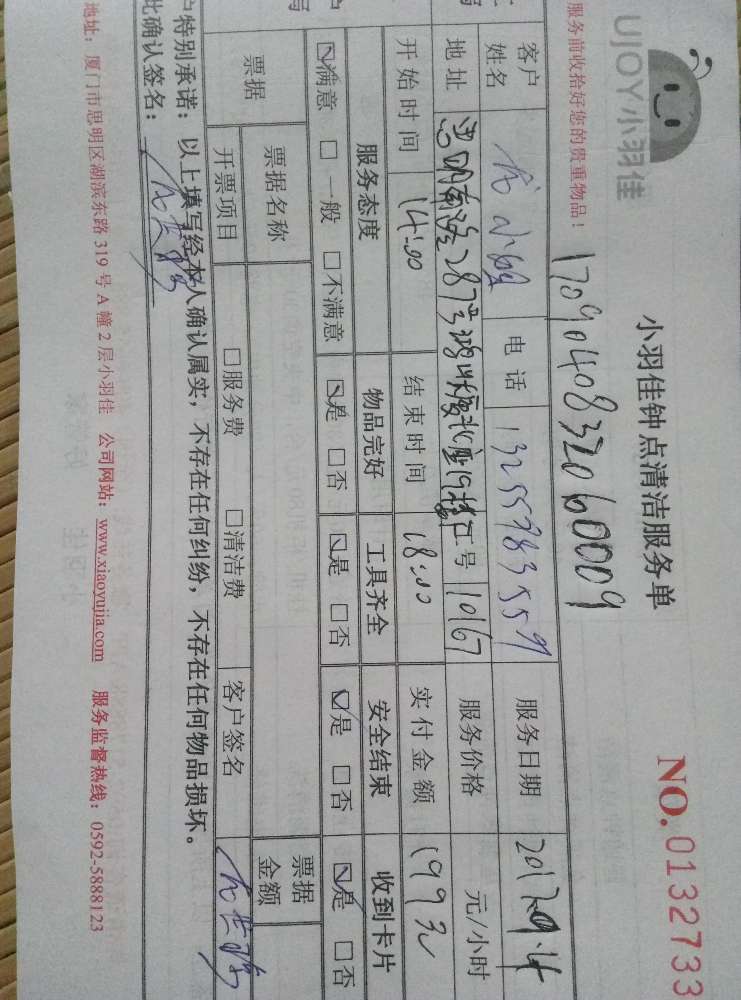 UJOY小羽佳
小羽佳钟点清洁服务单
NO.0132733
服务前收拾好您的贵重物品！
1709040832060009
客户姓名 小姐 电话 13255983559 服务日期 2017.9.4
地址 287号 工号 10167 服务价格 元/小时
开始时间 14:00 结束时间 18:00 实付金额 199元
服务态度 物品完好 工具齐全 安全结束 收到卡片
☑满意 □一般 □不满意 ☑是 □否 ☑是 □否 ☑是 □否 ☑是 □否
票据 票据名称 票据金额
开票项目 □服务费 □清洁费 客户签名
户特别承诺：以上填写经本人确认属实，不存在任何纠纷，不存在任何物品损坏。
此确认签名：
地址：厦门市思明区湖滨东路319号A幢2层小羽佳 公司网站：www.xiaoyujia.com 服务监督热线：0592-5888123